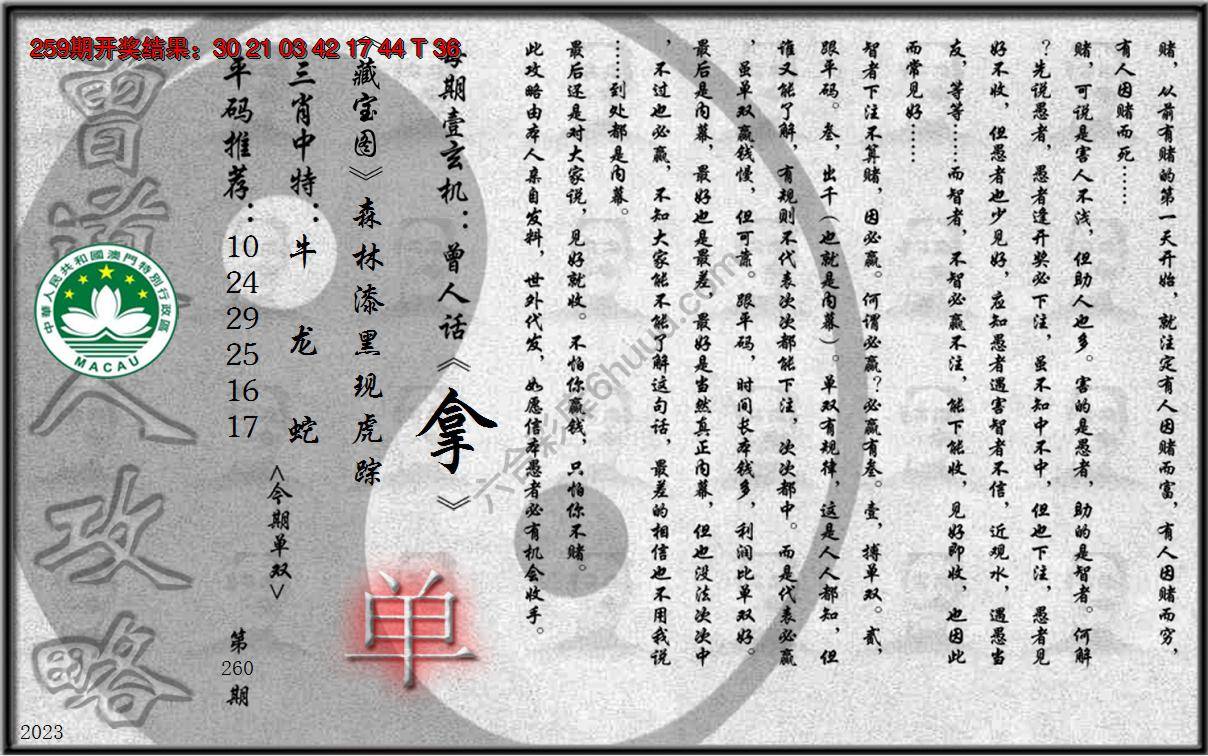 259期开奖结果：30 21 03 42 17 44 T 36
赌，从前有赌的第一天开始，就注定有人因赌而富，有人因赌而穷，
有人因赌而死……
赌，可说是害人不浅，但助人也多。害的是愚者，助的是智者。何解
？先说愚者，愚者逢开奖必下注，虽不知中不中，但也下注，愚者见
好不收，但愚者也少见好，应知愚者遇害智者不信，近观水，遇愚当
友，等等……而智者，不智必赢不注，能下能收，见好即收，也因此
而常见好……
智者下注不算赌，因必赢。何谓必赢？必赢有叁。壹，搏单双。贰，
跟平码。叁，出千（也就是内幕）。单双有规律，这是人人都知，但
谁又能了解，有规则不代表次次都能下注，次次都中。而是代表必赢
，虽单双赢钱慢，但可靠。跟平码，时间长本钱多，利润比单双好。
最后是内幕，最好也是最差，最好是当然真正内幕，但也没法次次中
，不过也必赢，不知大家能不能了解这句话，最差的相信也不用我说
……到处都是内幕。
最后还是对大家说，见好就收。不怕你赢钱，只怕你不赌。
此攻略由本人亲自发料，世外代发，如愿信本愚者必有机会收手。
每期壹玄机：曾人话《拿》
《藏宝图》森林漆黑现虎踪
单
三肖中特：牛 龙 蛇
<今期单双>
平码推荐：10 24 29 25 16 17
第260期
曾道人攻略
中華人民共和國澳門特別行政區
MACAU
2023